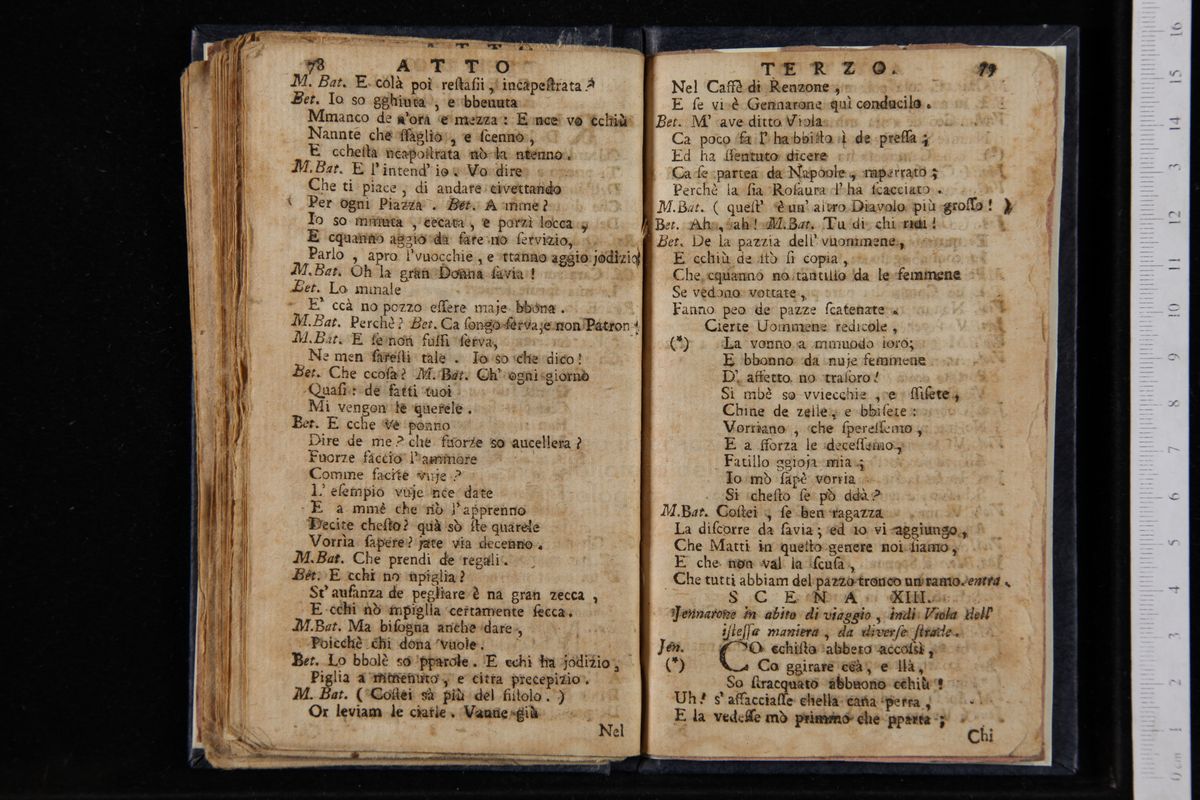 78 ATTO
M. Bat. E colà poi reſtaſii, incapeſtrata?
Bet. Io so gghiuta, e bbenuta
Mmanco de n'ora e mezza: E nce vo cchiù
Nannte che ſſaglio, e ſcenno,
E ccheſta ncapoſtrata nò la ntenno.
M.Bat. E l'intend' io. Vo dire
Che ti piace, di andare civettando
Per ogni Piazza. Bet. A mme?
Io so mmuta, cecata, e porzì locca,
E cquanno aggio da fare no ſervizio,
Parlo, apro l'vuocchie, e ttanno aggio jodizio
M.Bat. Oh la gran Donna ſavia!
Bet. Lo mmale
E' ccà no pozzo eſſere maje bbona.
M.Bat. Perchè? Bet. Ca ſongo ſervaje non Patron
M.Bat. E ſe non fuſſi ſerva,
Ne men fareſti tale. Io so che dico!
Bet. Che ccoſa? M. Bat. Ch' ogni giorno
Quaſi: de fatti tuoi
Mi vengon le querele.
Bet. E cche ve ponno
Dire de me? che fuorze so aucellera?
Fuorze faccio l'ammore
Comme facite vuje?
L' eſempio vuje nce date
E a mmè che nò l'apprenno
Decite cheſto? quà sò ſte quarele
Vorrìa ſapere? jate via decenno.
M.Bat. Che prendi de regali.
Bet. E cchi no npiglia?
St' auſanza de pegliare è na gran zecca,
E cchi nò mpiglia certamente ſecca.
M.Bat. Ma biſogna anche dare,
Poicchè chi dona vuole.
Bet. Lo bbolè so pparole. E cchi ha jodizio,
Piglia a mmenuto, e citra precepizio.
M. Bat. (Coſtei sà più del fiſtolo.)
Or leviam le ciarle. Vanne giù
Nel
TERZO. 79
Nel Caffè di Renzone,
E ſe vi è Gennarone quì conducilo.
Bet. M' ave ditto Viola
Ca poco fa l' ha bbiſto ì de preſſa;
Ed ha ſſentuto dicere
Ca ſe partea da Napole, mperrato;
Perchè la ſia Roſaura l' ha ſcacciato.
M.Bat. (queſt' è un' altro Diavolo più groſſo!)
Bet. Ah, ah! M.Bat. Tu di chi ridi!
Bet. De la pazzia dell' vuommene,
E cchiù de ſtò ſi copia,
Che cquanno no tantillo da le femmene
Se vedono vottate,
Fanno peo de pazze ſcatenate.
Cierte Uommene redicole,
(*) La vonno a mmuodo loro;
E bbonno da nuje femmene
D' affetto no traſoro!
Si mbè so vviecchie, e ſſiſete,
Chine de zelle, e bbiſete:
Vorriano, che ſpereſſemo,
E a ſſorza le deceſſemo,
Fatillo ggioja mia;
Io mò ſapè vorria
Si cheſto ſe pò ddà?
M.Bat. Coſtei, ſe ben ragazza
La diſcorre da ſavia; ed io vi aggiungo,
Che Matti in queſto genere noi ſiamo,
E che non val la ſcuſa,
Che tutti abbiam del pazzo tronco un ramo. entra.
SCENA XIII.
Jennarone in abito di viaggio, indi Viola dell'
iſteſſa maniera, da diverſe ſtrade.
Jen. CO cchiſto abbeto accoſsì,
(*) Co ggirare ccà, e llà,
So ſtracquato abbuono cchiù!
Uh! s' affacciaſſe chella cana perra,
E la vedeſſe mò primmo che pparta;
Chi
16 15 14 13 12 11 10 9 8 7 6 5 4 3 2 1 0 cm